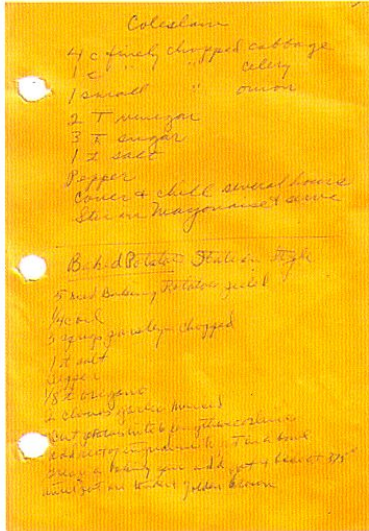 Coleslaw
4 c finely chopped cabbage
1 c " " " celery
1 small " onion
2 T vinegar
3 T sugar
1 t salt
Pepper
Cover & chill several hours
Stir in Mayonaise & serve
Baked Potatoes Italian Style
5 med Baking Potatoes peeled
1/4 c oil
3 sprigs parsley chopped
1 t salt
Pepper
1/8 t oregano
2 cloves garlic minced
Cut potatoes into 6 lengthwise
add rest of ingredients in a bowl
Grease a baking pan add pot & bake at 375°
until pot are tender & golden brown